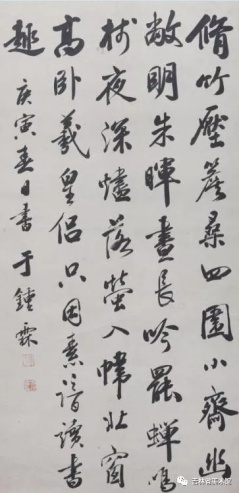 脩竹壓簷桑四圍小齋幽
敞明朱暉晝長吟罷蟬鳴
樹夜深燼落螢入幃北窗
高卧羲皇侶只因素諳讀書
趣
庚寅春日書 于鍾霖